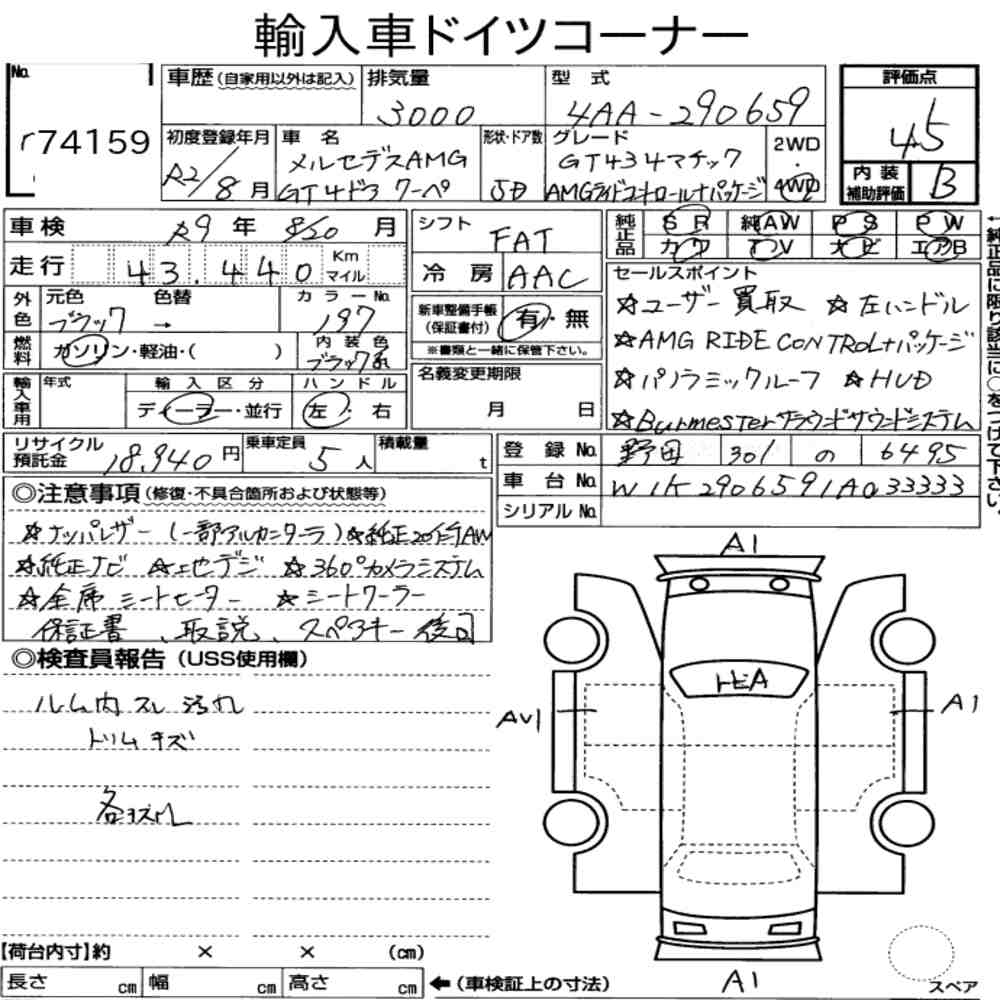 輸入車ドイツコーナー
No. 74159
車歴(自家用以外は記入) 排気量 3000 型式 4AA-290659 評価点 4.5
初度登録年月 R2/8月 車名 メルセデスAMG GT4ドア クーペ 形状・ドア数 5D グレード GT43 4マチック AMGライドコントロール+パッケージ 2WD・4WD 内装補助評価 B
車検 R9年 8/20月 シフト FAT 純正品 SR 純AW PS PW
走行 43,440 Km マイル 冷房 AAC カワ TV ナビ エアB
外色 元色 ブラック 色替 → カラーNo. 197 新車整備手帳(保証書付) 有・無
燃料 ガソリン・軽油・( ) 内装色 ブラック系 ※書類と一緒に保管下さい。
輸入車用 年式 輸入区分 ディーラー・並行 ハンドル 左・右 名義変更期限 月 日
セールスポイント
☆ユーザー買取 ☆左ハンドル
☆AMG RIDE CONTROL+パッケージ
☆パノラミックルーフ ☆HUD
☆Burmesterサラウンドサウンドシステム
←純正品に限り該当に○をつけて下さい。
リサイクル預託金 18,940円 乗車定員 5人 積載量 t
登録No. 野田 301 の 6495
車台No. W1K2906591A033333
シリアルNo.
◎注意事項(修復・不具合箇所および状態等)
☆ナッパレザー(一部アルカンターラ)☆純正20インチAW
☆純正ナビ ☆地デジ ☆360°カメラシステム
☆全席シートヒーター ☆シートクーラー
保証書、取説、スペアキー後日
◎検査員報告(USS使用欄)
ルーム内スレ 汚れ
トリムキズ
各キズ
A1
トビA
AU1
A1
A1
【荷台内寸】約 × × (cm)
長さ cm 幅 cm 高さ cm ←(車検証上の寸法)
スペア